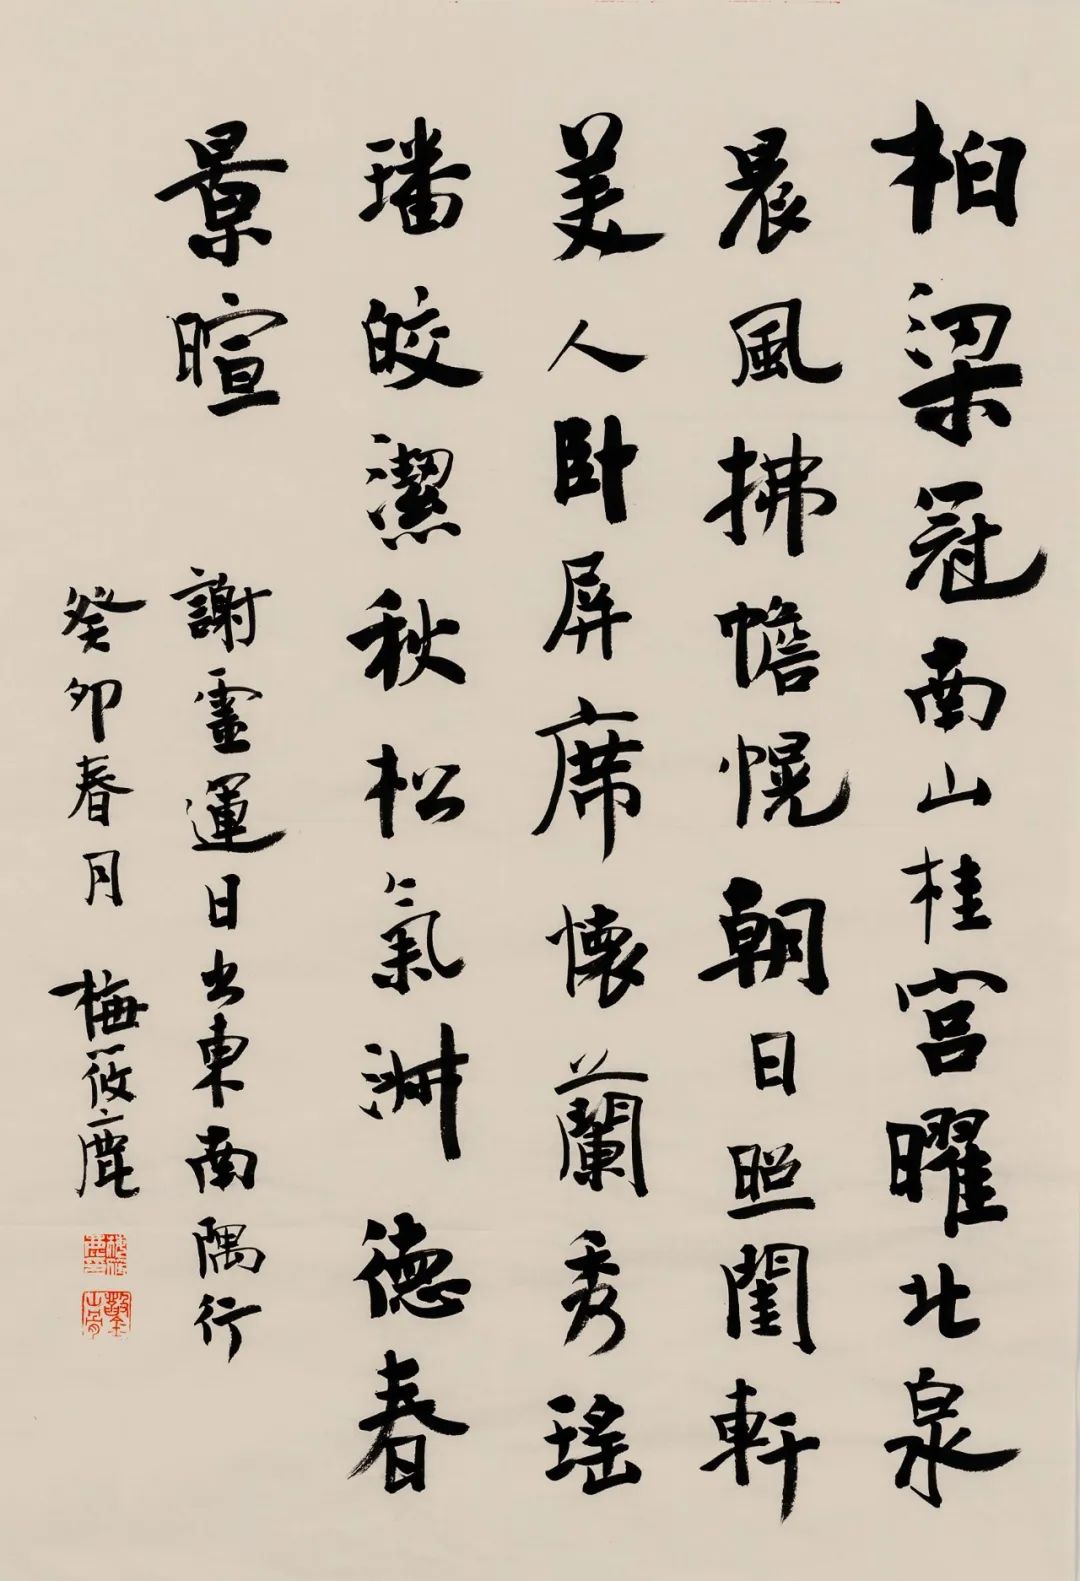 柏梁冠南山桂宫曜北泉
晨風拂幨幌朝日照閨軒
美人卧屏席懷蘭秀瑤
璠皎潔秋松氣淋德春
景暄
謝靈運日出東南隅行
癸卯春月 梅筱鹿